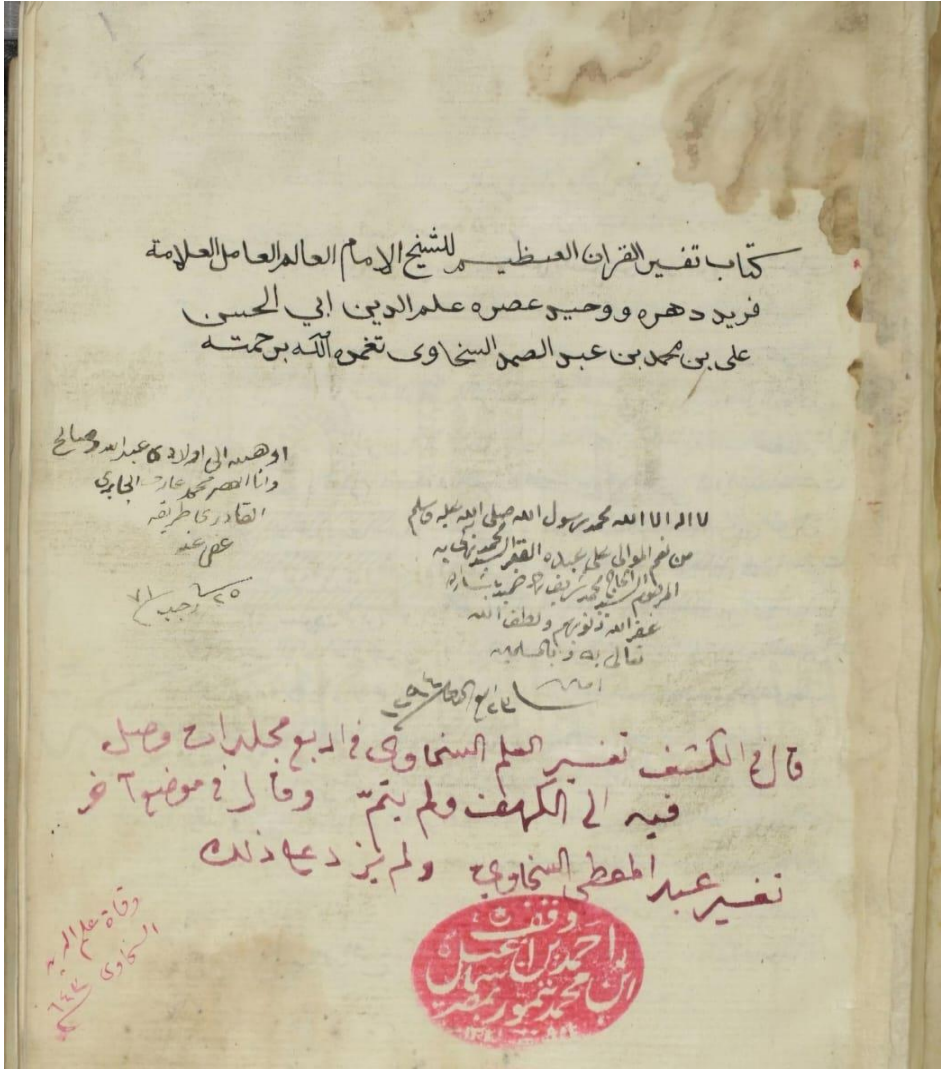 كتاب تفسير القران العظيم للشيخ الامام العالم العامل العلامة
فريد دهره ووحيد عصره علم الدين ابي الحسن
على بن محمد بن عبد الصمد السخاوى تغمده الله برحمته
اوهبه الى اولادى عبد الله وصالح
وانا محمد عارف الجابري
القادرى طريقه
عفى عنه
٢٥ رجب ٧١
لا اله الا الله محمد رسول الله صلى الله عليه وسلم
من نعم الموالى على عبده السيد محمد
المرحوم السيد الحاج محمد شريف
غفر الله ذنوبهم ولطف الله
تعالى به وبالمسلمين
امين
قال في الكشف تفسير العلم السخاوي في اربع مجلدات وصل
فيه الى الكهف ولم يتمّ وقال في موضع آخر
تفسير عبد المعطي السخاوي ولم يزد على ذلك
وفاة علم الدين
السخاوى ٦٤٣
وقف
احمد بن اسماعيل
ابن محمد تيمور بمصر